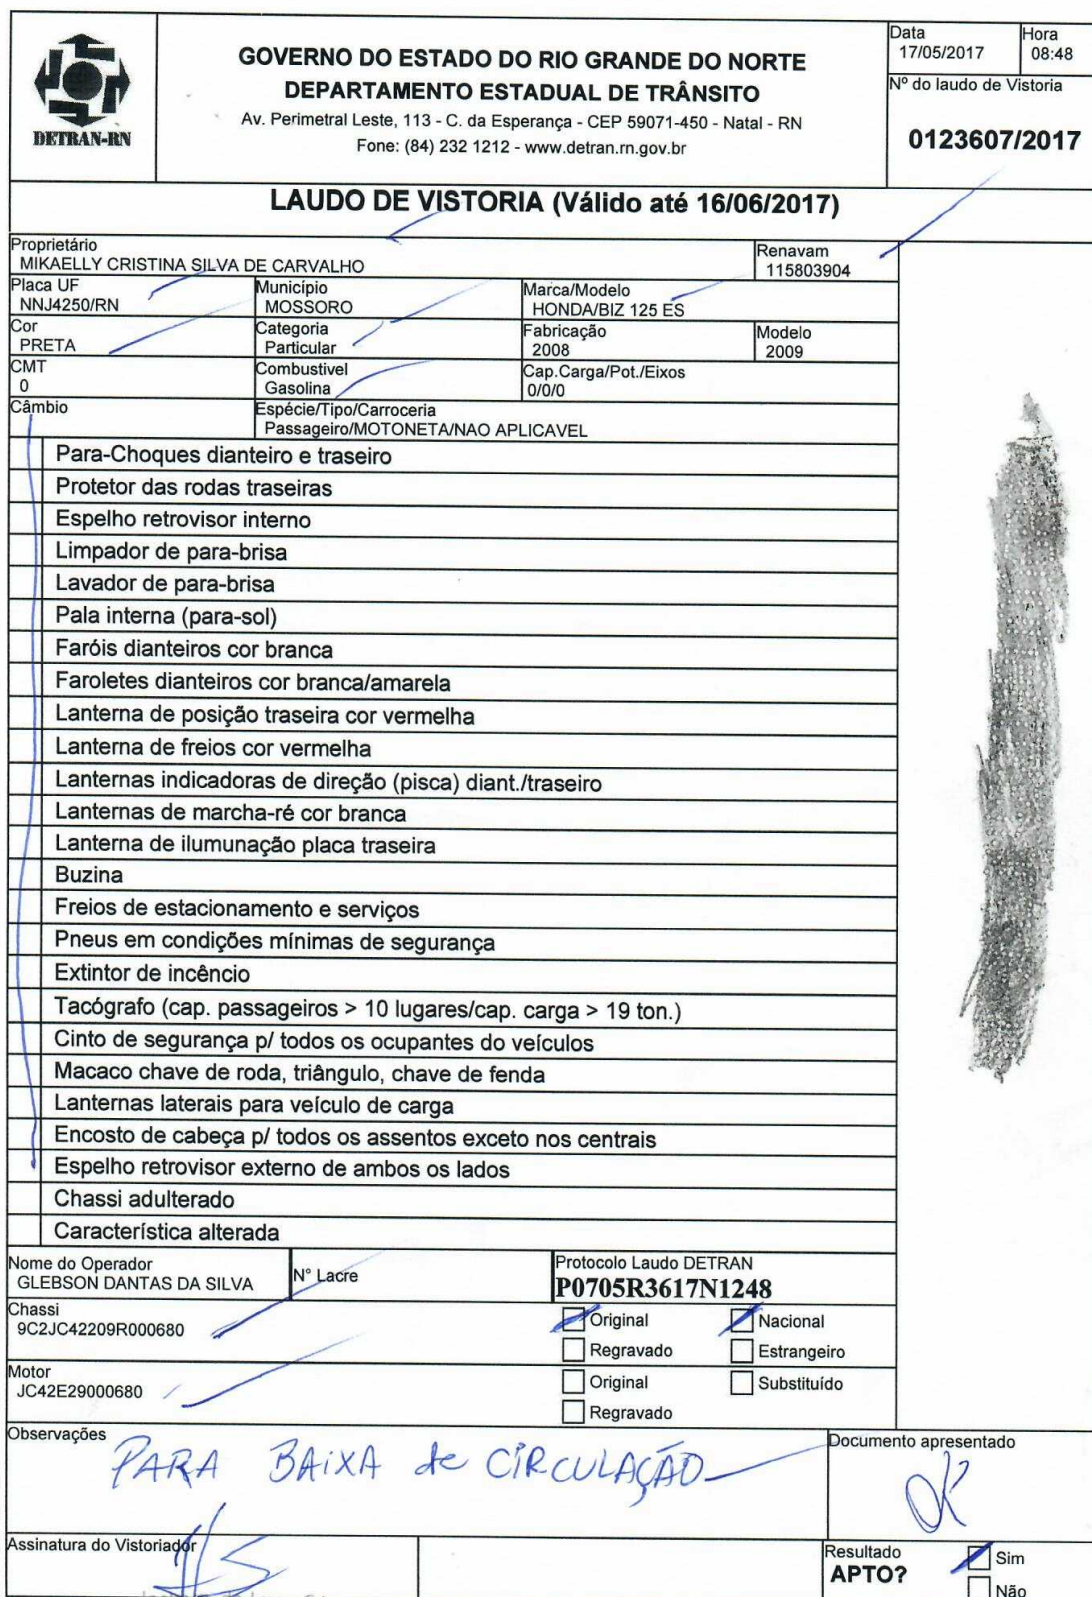 DETRAN-RN
GOVERNO DO ESTADO DO RIO GRANDE DO NORTE
DEPARTAMENTO ESTADUAL DE TRÂNSITO
Av. Perimetral Leste, 113 - C. da Esperança - CEP 59071-450 - Natal - RN
Fone: (84) 232 1212 - www.detran.rn.gov.br
Data
17/05/2017
Hora
08:48
Nº do laudo de Vistoria
0123607/2017
LAUDO DE VISTORIA (Válido até 16/06/2017)
Proprietário
MIKAELLY CRISTINA SILVA DE CARVALHO
Renavam
115803904
Placa UF
NNJ4250/RN
Município
MOSSORO
Marca/Modelo
HONDA/BIZ 125 ES
Cor
PRETA
Categoria
Particular
Fabricação
2008
Modelo
2009
CMT
0
Combustivel
Gasolina
Cap.Carga/Pot./Eixos
0/0/0
Câmbio
Espécie/Tipo/Carroceria
Passageiro/MOTONETA/NAO APLICAVEL
Para-Choques dianteiro e traseiro
Protetor das rodas traseiras
Espelho retrovisor interno
Limpador de para-brisa
Lavador de para-brisa
Pala interna (para-sol)
Faróis dianteiros cor branca
Faroletes dianteiros cor branca/amarela
Lanterna de posição traseira cor vermelha
Lanterna de freios cor vermelha
Lanternas indicadoras de direção (pisca) diant./traseiro
Lanternas de marcha-ré cor branca
Lanterna de ilumunação placa traseira
Buzina
Freios de estacionamento e serviços
Pneus em condições mínimas de segurança
Extintor de incêncio
Tacógrafo (cap. passageiros > 10 lugares/cap. carga > 19 ton.)
Cinto de segurança p/ todos os ocupantes do veículos
Macaco chave de roda, triângulo, chave de fenda
Lanternas laterais para veículo de carga
Encosto de cabeça p/ todos os assentos exceto nos centrais
Espelho retrovisor externo de ambos os lados
Chassi adulterado
Característica alterada
Nome do Operador
GLEBSON DANTAS DA SILVA
N° Lacre
Protocolo Laudo DETRAN
P0705R3617N1248
Chassi
9C2JC42209R000680
Original
Nacional
Regravado
Estrangeiro
Motor
JC42E29000680
Original
Substituído
Regravado
Observações
PARA BAIXA de CIRCULAÇÃO
Documento apresentado
OK
Assinatura do Vistoriador
Resultado
APTO?
Sim
Não